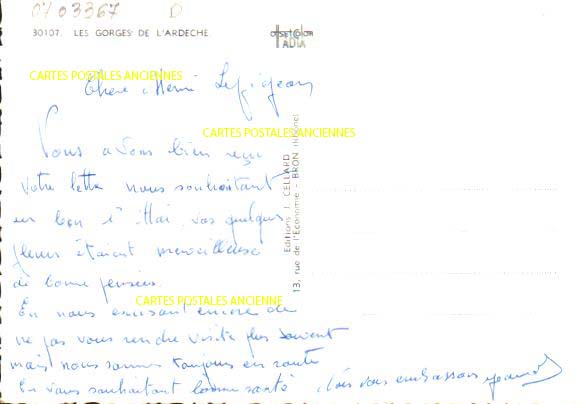 0703367 D
30107. LES GORGES DE L'ARDECHE
offset color
IADIA
CARTES POSTALES ANCIENNES
Chère Mémé Lepigeon
CARTES POSTALES ANCIENNES
Nous avons bien reçu
votre lettre nous souhaitant
un bon 1er Mai, vos quelques
fleurs étaient merveilleuse
de bonne pensées.
CARTES POSTALES ANCIENNE
En nous excusant encore de
ne pas vous rendre visite plus souvent
mais nous sommes toujours en route
En vous souhaitant bonne santé. vous embrassons
Editions J. CELLARD
13, rue de l'Economie - BRON (Rhône)